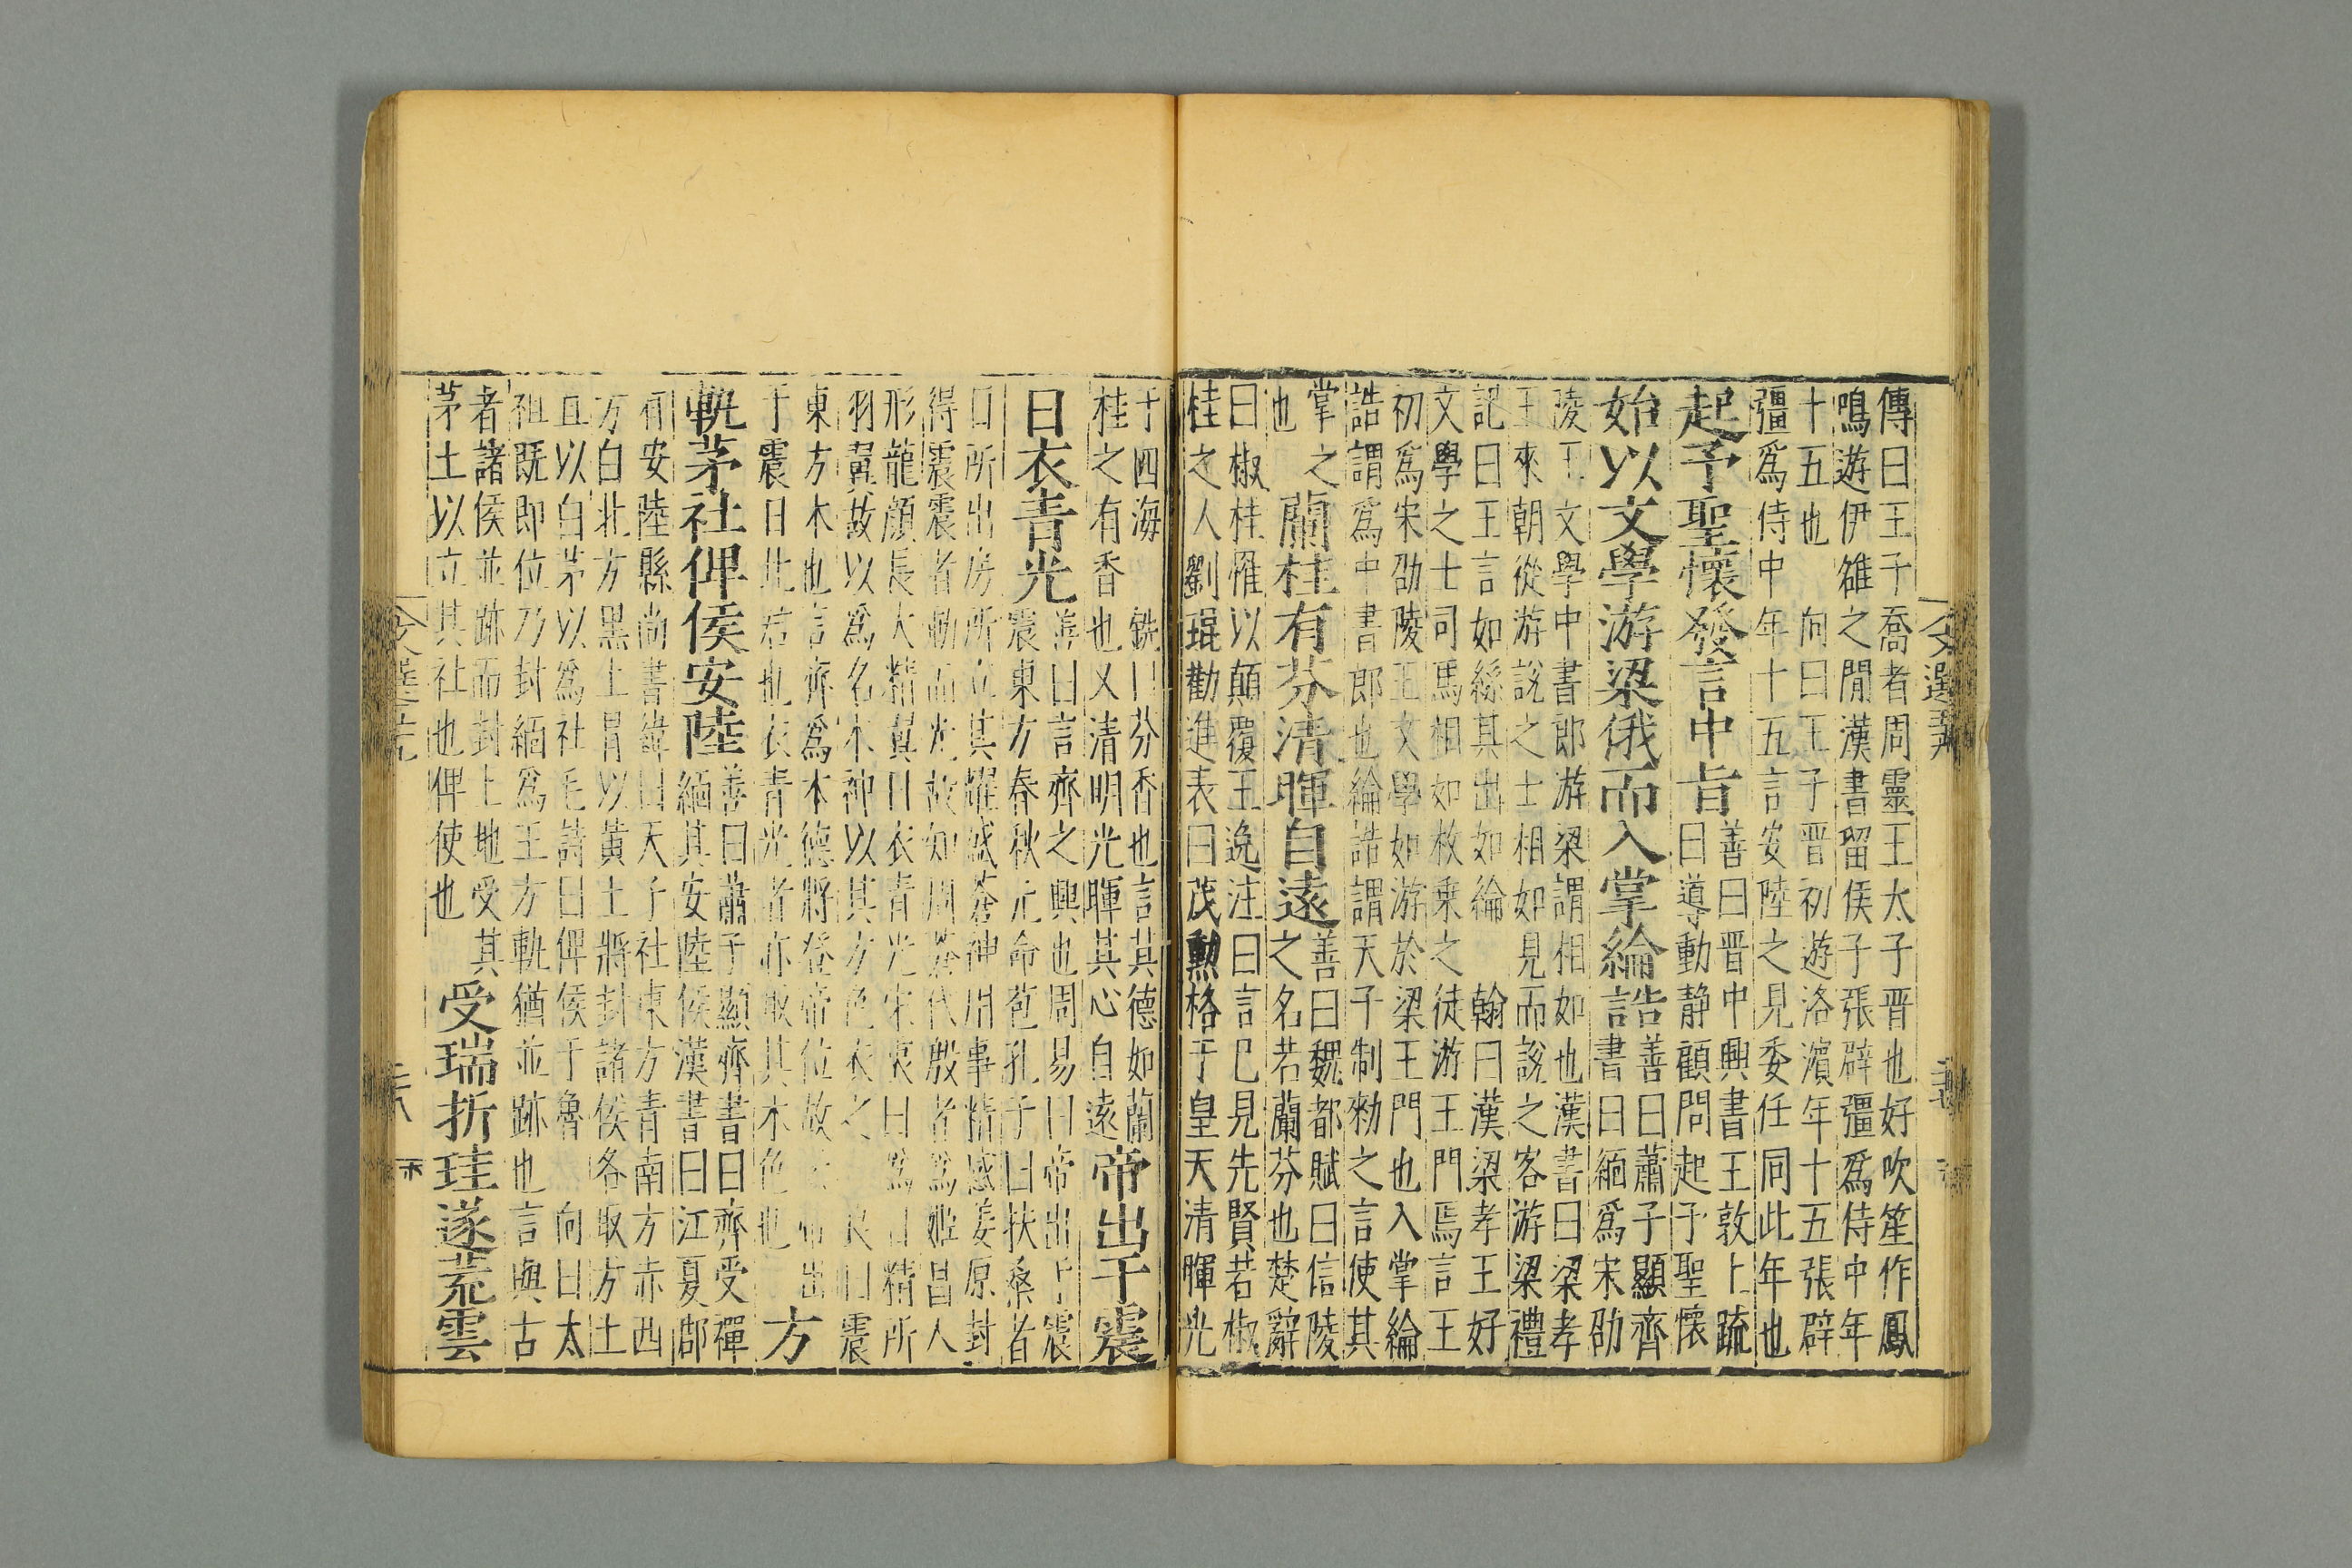 傳曰王子喬者周靈王太子晋也好吹笙作鳳
鳴遊伊雒之閒漢書留侯子張辟彊爲侍中年
十五也 向曰王子晋初遊洛濵年十五張辟
彊爲侍中年十五言安陸之見委任同此年也
起予聖懷發言中旨善曰晋中興書王敦上疏
曰導動静顧問起予聖懷
始以文學游梁俄而入掌綸誥善曰蕭子顯齊
書曰緬爲宋劭
陵王文學中書郎游梁謂相如也漢書曰梁孝
王來朝從游說之士相如見而說之客游梁禮
記曰王言如絲其出如綸 翰曰漢梁孝王好
文學之士司馬相如枚乗之徒游王門焉言王
初爲宋劭陵王文學如游於梁王門也入掌綸
誥謂爲中書郎也綸誥謂天子制勑之言使其
掌之
也
蘭桂有芬清暉自遠善曰魏都賦曰信陵
之名若蘭芬也楚辭
曰椒桂罹以顛覆王逸注曰言已見先賢若椒
桂之人劉琨勸進表曰茂勲格于皇天清暉光
于四海 銑曰芬香也言其德如蘭
桂之有香也又清明光暉其心自遠
帝出于震
日衣青光善曰言齊之興也周易曰帝出于震
震東方春秋元命苞孔子曰扶桑者
日所出房所立其耀盛蒼神用事精感姜原封
得震震者動而光故知周蒼代殷者爲姬昌人
形龍顔長大精翼日衣青光宋衷曰爲日精所
羽翼故以爲名木神以其方色衣之 良曰震
東方木也言齊爲木德將登帝位故云帝出
于震日比君也衣青光者亦取其木色也
方
軌茅社俾侯安陸善曰蕭子顯齊書曰齊受禪
緬其安陸侯漢書曰江夏郡
有安陸縣尚書緯曰天子社東方青南方赤西
方白北方黑上冐以黃土將封諸侯各取方土
苴以白茅以爲社毛詩曰俾侯于魯 向曰太
祖既即位乃封緬爲王方軌猶並跡也言與古
者諸侯並跡而封土地受其
茅土以立其社也俾使也
受瑞折珪遂荒雲